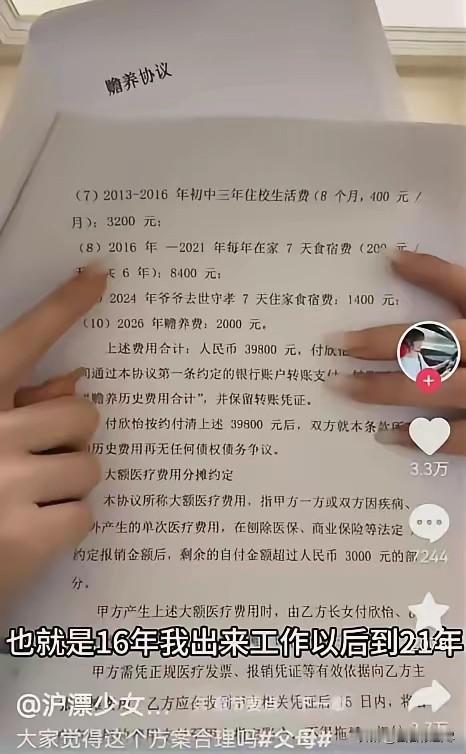 赡养协议
(7) 2013-2016 年初中三年住校生活费(8 个月,400 元/
月): 3200 元;
(8) 2016 年 —2021 年每年在家 7 天食宿费(200 元/
共 6 年): 8400 元;
2024 年爷爷去世守孝 7 天住家食宿费: 1400 元;
(10) 2026 年赡养费: 2000 元。
上述费用合计: 人民币 39800 元, 付欣怡
通过本协议第一条约定的银行账户转账支付
“赡养历史费用合计”, 并保留转账凭证。
付欣怡按约付清上述 39800 元后, 双方就本条款
历史费用再无任何债权债务争议。
大额医疗费用分摊约定
本协议所称大额医疗费用, 指甲方一方或双方因疾病、
外产生的单次医疗费用, 在刨除医保、商业保险等法定
约定报销金额后, 剩余的自付金额超过人民币 3000 元的部
分。
甲方产生上述大额医疗费用时, 由乙方长女付欣怡、
也就是16年我出来工作以后到21年
甲方需凭正规医疗发票、报销凭证等有效依据向乙方主
乙方应在收到
相关凭证后 15 日内, 将
@沪漂少女...
大家觉得这个方案合理吗#父母#
3.3万
7244